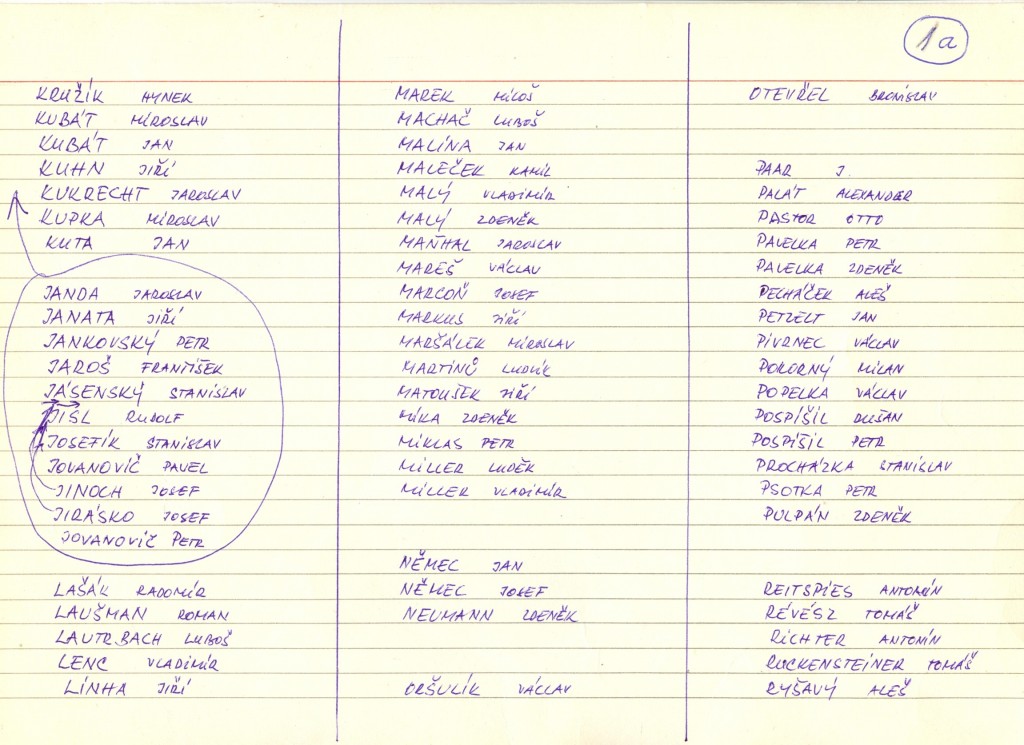 1a
KRUŽÍK HYNEK
KUBÁT MIROSLAV
KUBÁT JAN
KUHN JIŘÍ
KUKRECHT JAROSLAV
KUPKA MIROSLAV
KUTA JAN
JANDA JAROSLAV
JANATA JIŘÍ
JANKOVSKÝ PETR
JAROŠ FRANTIŠEK
JÁSENSKÝ STANISLAV
JISL RUDOLF
JOSEFÍK STANISLAV
JOVANOVIČ PAVEL
JINOCH JOSEF
JIRÁSKO JOSEF
JOVANOVIČ PETR
LAŠÁK RADOMÍR
LAUŠMAN ROMAN
LAUTRBACH LUBOŠ
LENC VLADIMÍR
LINHA JIŘÍ
MAREK MILOŠ
MACHAČ LUBOŠ
MALINA JAN
MALEČEK KAMIL
MALÝ VLADIMÍR
MALÝ ZDENĚK
MAŇHAL JAROSLAV
MAREŠ VÁCLAV
MARCOŇ JOSEF
MARKUS JIŘÍ
MARŠÁLEK MIROSLAV
MARTINŮ LUDVÍK
MATOUŠEK JIŘÍ
MÍKA ZDENĚK
MIKLAS PETR
MILLER LUDĚK
MILLER VLADIMÍR
NĚMEC JAN
NĚMEC JOSEF
NEUMANN ZDENĚK
ORŠULÍK VÁCLAV
OTEVŘEL BRONISLAV
PAAR J.
PALÁT ALEXANDER
PASTOR OTTO
PAVELKA PETR
PAVELKA ZDENĚK
PECHÁČEK ALEŠ
PETZELT JAN
PIVRNEC VÁCLAV
POKORNÝ MILAN
POPELKA VÁCLAV
POSPÍŠIL DUŠAN
POSPÍŠIL PETR
PROCHÁZKA STANISLAV
PSOTKA PETR
PULPÁN ZDENĚK
REITSPIES ANTONÍN
RÉVÉSZ TOMÁŠ
RICHTER ANTONÍN
ROCKENSTEINER TOMÁŠ
RYŠAVÝ ALEŠ